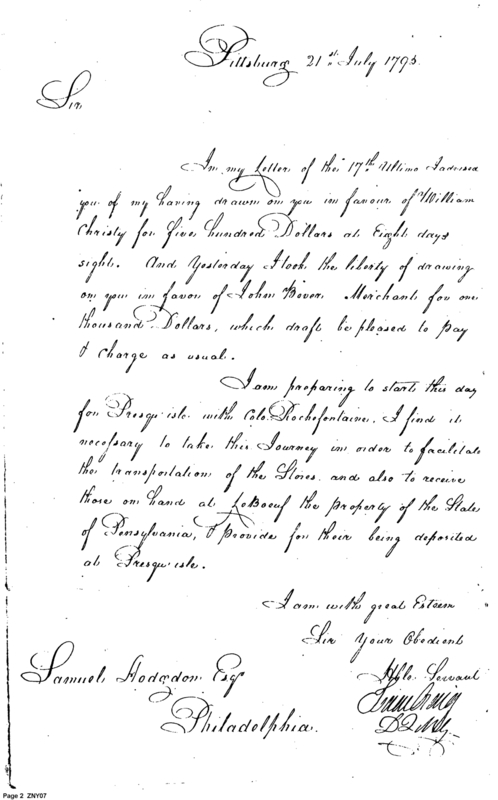 Pittsburg 21st July 1795
Sir
In my Letter of the 17th Ultimo I advised
you of my having drawn on you in favour of William
Christy for five hundred Dollars at Eight days
sight. And Yesterday I took the liberty of drawing
on you in favor of John Bever Merchant for one
thousand Dollars, which draft be pleased to pay
& charge as usual.
I am preparing to start this day
for Presqu'isle with Colo. Rochefontaine. I find it
necessary to take this Journey in order to facilitate
the transportation of the Stores, and also to receive
those on hand at LeBoeuf the property of the State
of Pensylvania, & provide for their being deposited
at Presqu'isle.
I am with great Esteem
Sir Your Obedient
Hble Servant
Isaac Craig
D Q M G
Samuel Hodgdon Esqr
Philadelphia.
Page 2 ZNY07